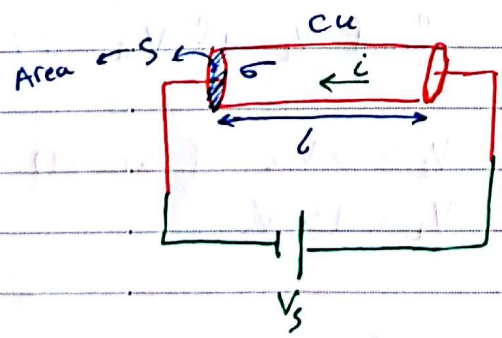 Cu
Area
S
σ
i
l
Vs